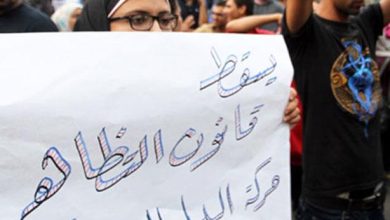 يسقط
قانون التظاهر
حركة